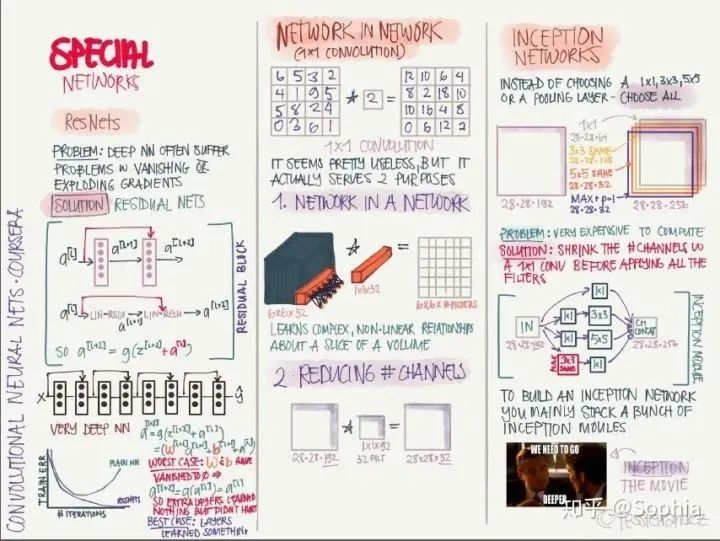 CONVOLUTIONAL NEURAL NETS · COURSERA
SPECIAL
NETWORKS
ResNets
PROBLEM: DEEP NN OFTEN SUFFER
PROBLEMS W VANISHING OR
EXPLODING GRADIENTS
SOLUTION RESIDUAL NETS
a[l] a[l+1] a[l+2]
a[l] LIN-RELU LIN-RELU a[l+2]
a[l+1]
SO a[l+2] = g(z[l+2] + a[l])
RESIDUAL BLOCK
X ŷ
VERY DEEP NN
TRAIN ERR
PLAIN NN
RESNETS
# ITERATIONS
a[l+2] = g(z[l+2] + a[l])
WORST CASE: W & b HAVE
VANISHED TO 0 ⇒
a[l+2] = g(a[l]) = a[l]
SO EXTRA LAYERS LEARNED
NOTHING BUT DIDNT HURT
BEST CASE: LAYERS
LEARNED SOMETHING
NETWORK IN NETWORK
(1×1 CONVOLUTION)
6 5 3 2
4 1 9 5
5 8 2 4
0 3 6 1
* 2 =
12 10 6 4
8 2 18 10
10 16 4 8
0 6 12 2
1×1 CONVOLUTION
IT SEEMS PRETTY USELESS, BUT IT
ACTUALLY SERVES 2 PURPOSES
1. NETWORK IN A NETWORK
* =
6×6×32
1×1×32
6×6×#FILTERS
LEARNS COMPLEX, NON-LINEAR RELATIONSHIPS
ABOUT A SLICE OF A VOLUME
2 REDUCING # CHANNELS
* =
28·28·192
1×1×192
32 FILT
28×28×32
INCEPTION
NETWORKS
INSTEAD OF CHOOSING A 1×1, 3×3, 5×5
OR A POOLING LAYER - CHOOSE ALL
1×1
28·28·64
3×3 SAME
28·28·128
5×5 SAME
28·28·32
MAX+P=1
28·28·32
28·28·192
28·28·256
PROBLEM: VERY EXPENSIVE TO COMPUTE
SOLUTION: SHRINK THE #CHANNELS W
A 1×1 CONV BEFORE APPLYING ALL THE
FILTERS
1×1
IN
28·28·192
1×1 3×3
1×1 5×5
3×3
SAME
1×1
CH
CONCAT
28·28·256
INCEPTION MODULE
TO BUILD AN INCEPTION NETWORK
YOU MAINLY STACK A BUNCH OF
INCEPTION MOULES
WE NEED TO GO
DEEPER
INCEPTION
THE MOVIE
知乎 @Sophia